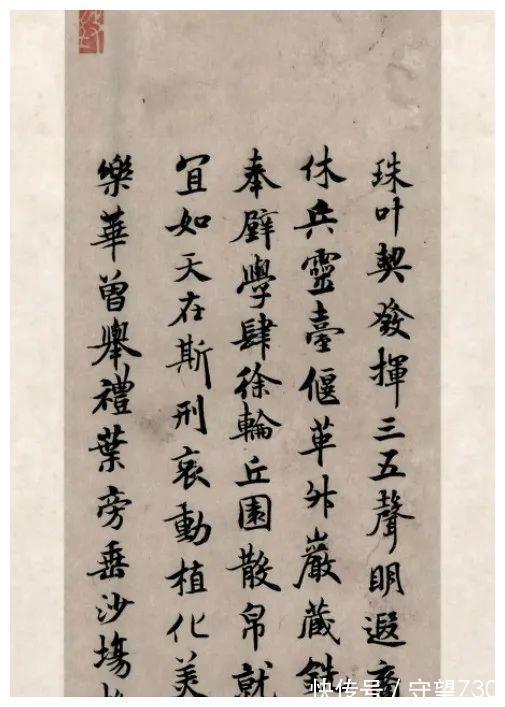 珠叶契發揮三五聲明遐
休兵靈臺偃革外嚴藏
奉璧學肆徐輪丘園散帛就
宜如天在斯刑哀動植化美
樂華曾舉禮葉旁垂沙場
快传号 / 守望730